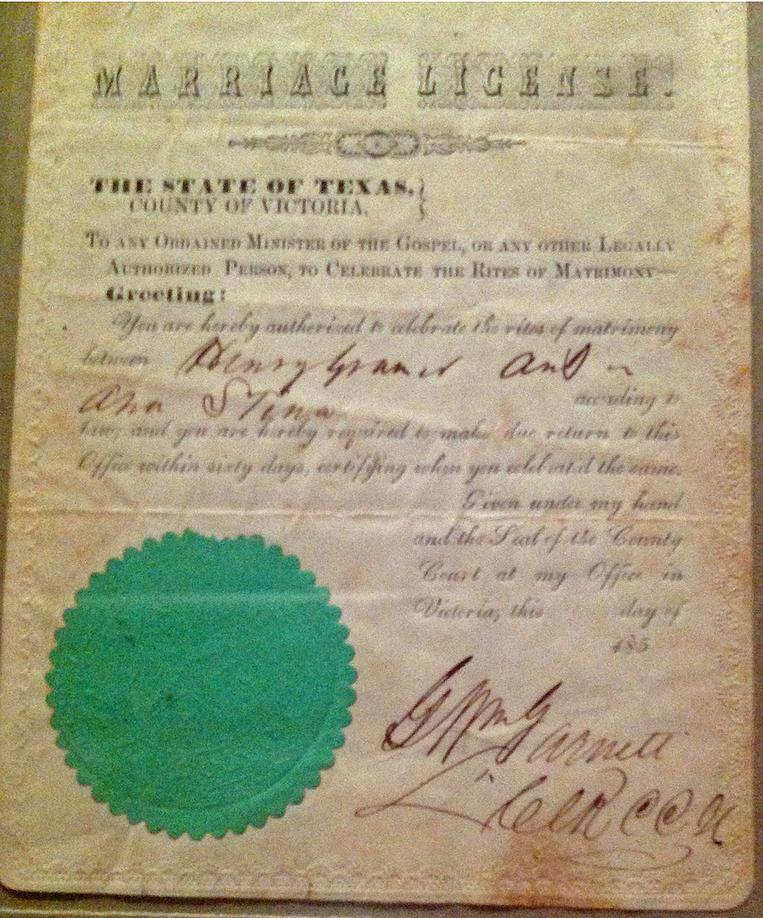 MARRIAGE LICENSE.
THE STATE OF TEXAS,
COUNTY OF VICTORIA.
TO ANY ORDAINED MINISTER OF THE GOSPEL, OR ANY OTHER LEGALLY
AUTHORIZED PERSON, TO CELEBRATE THE RITES OF MATRIMONY—
Greeting:
You are hereby authorized to celebrate the rites of matrimony
between Henry and
according to
law; and you are hereby required to make due return to this
Office within sixty days, certifying when you celebrat'd the same.
Given under my hand
and the Seal of the County
Court at my Office in
Victoria, this day of
185
Garnett
Clk C C